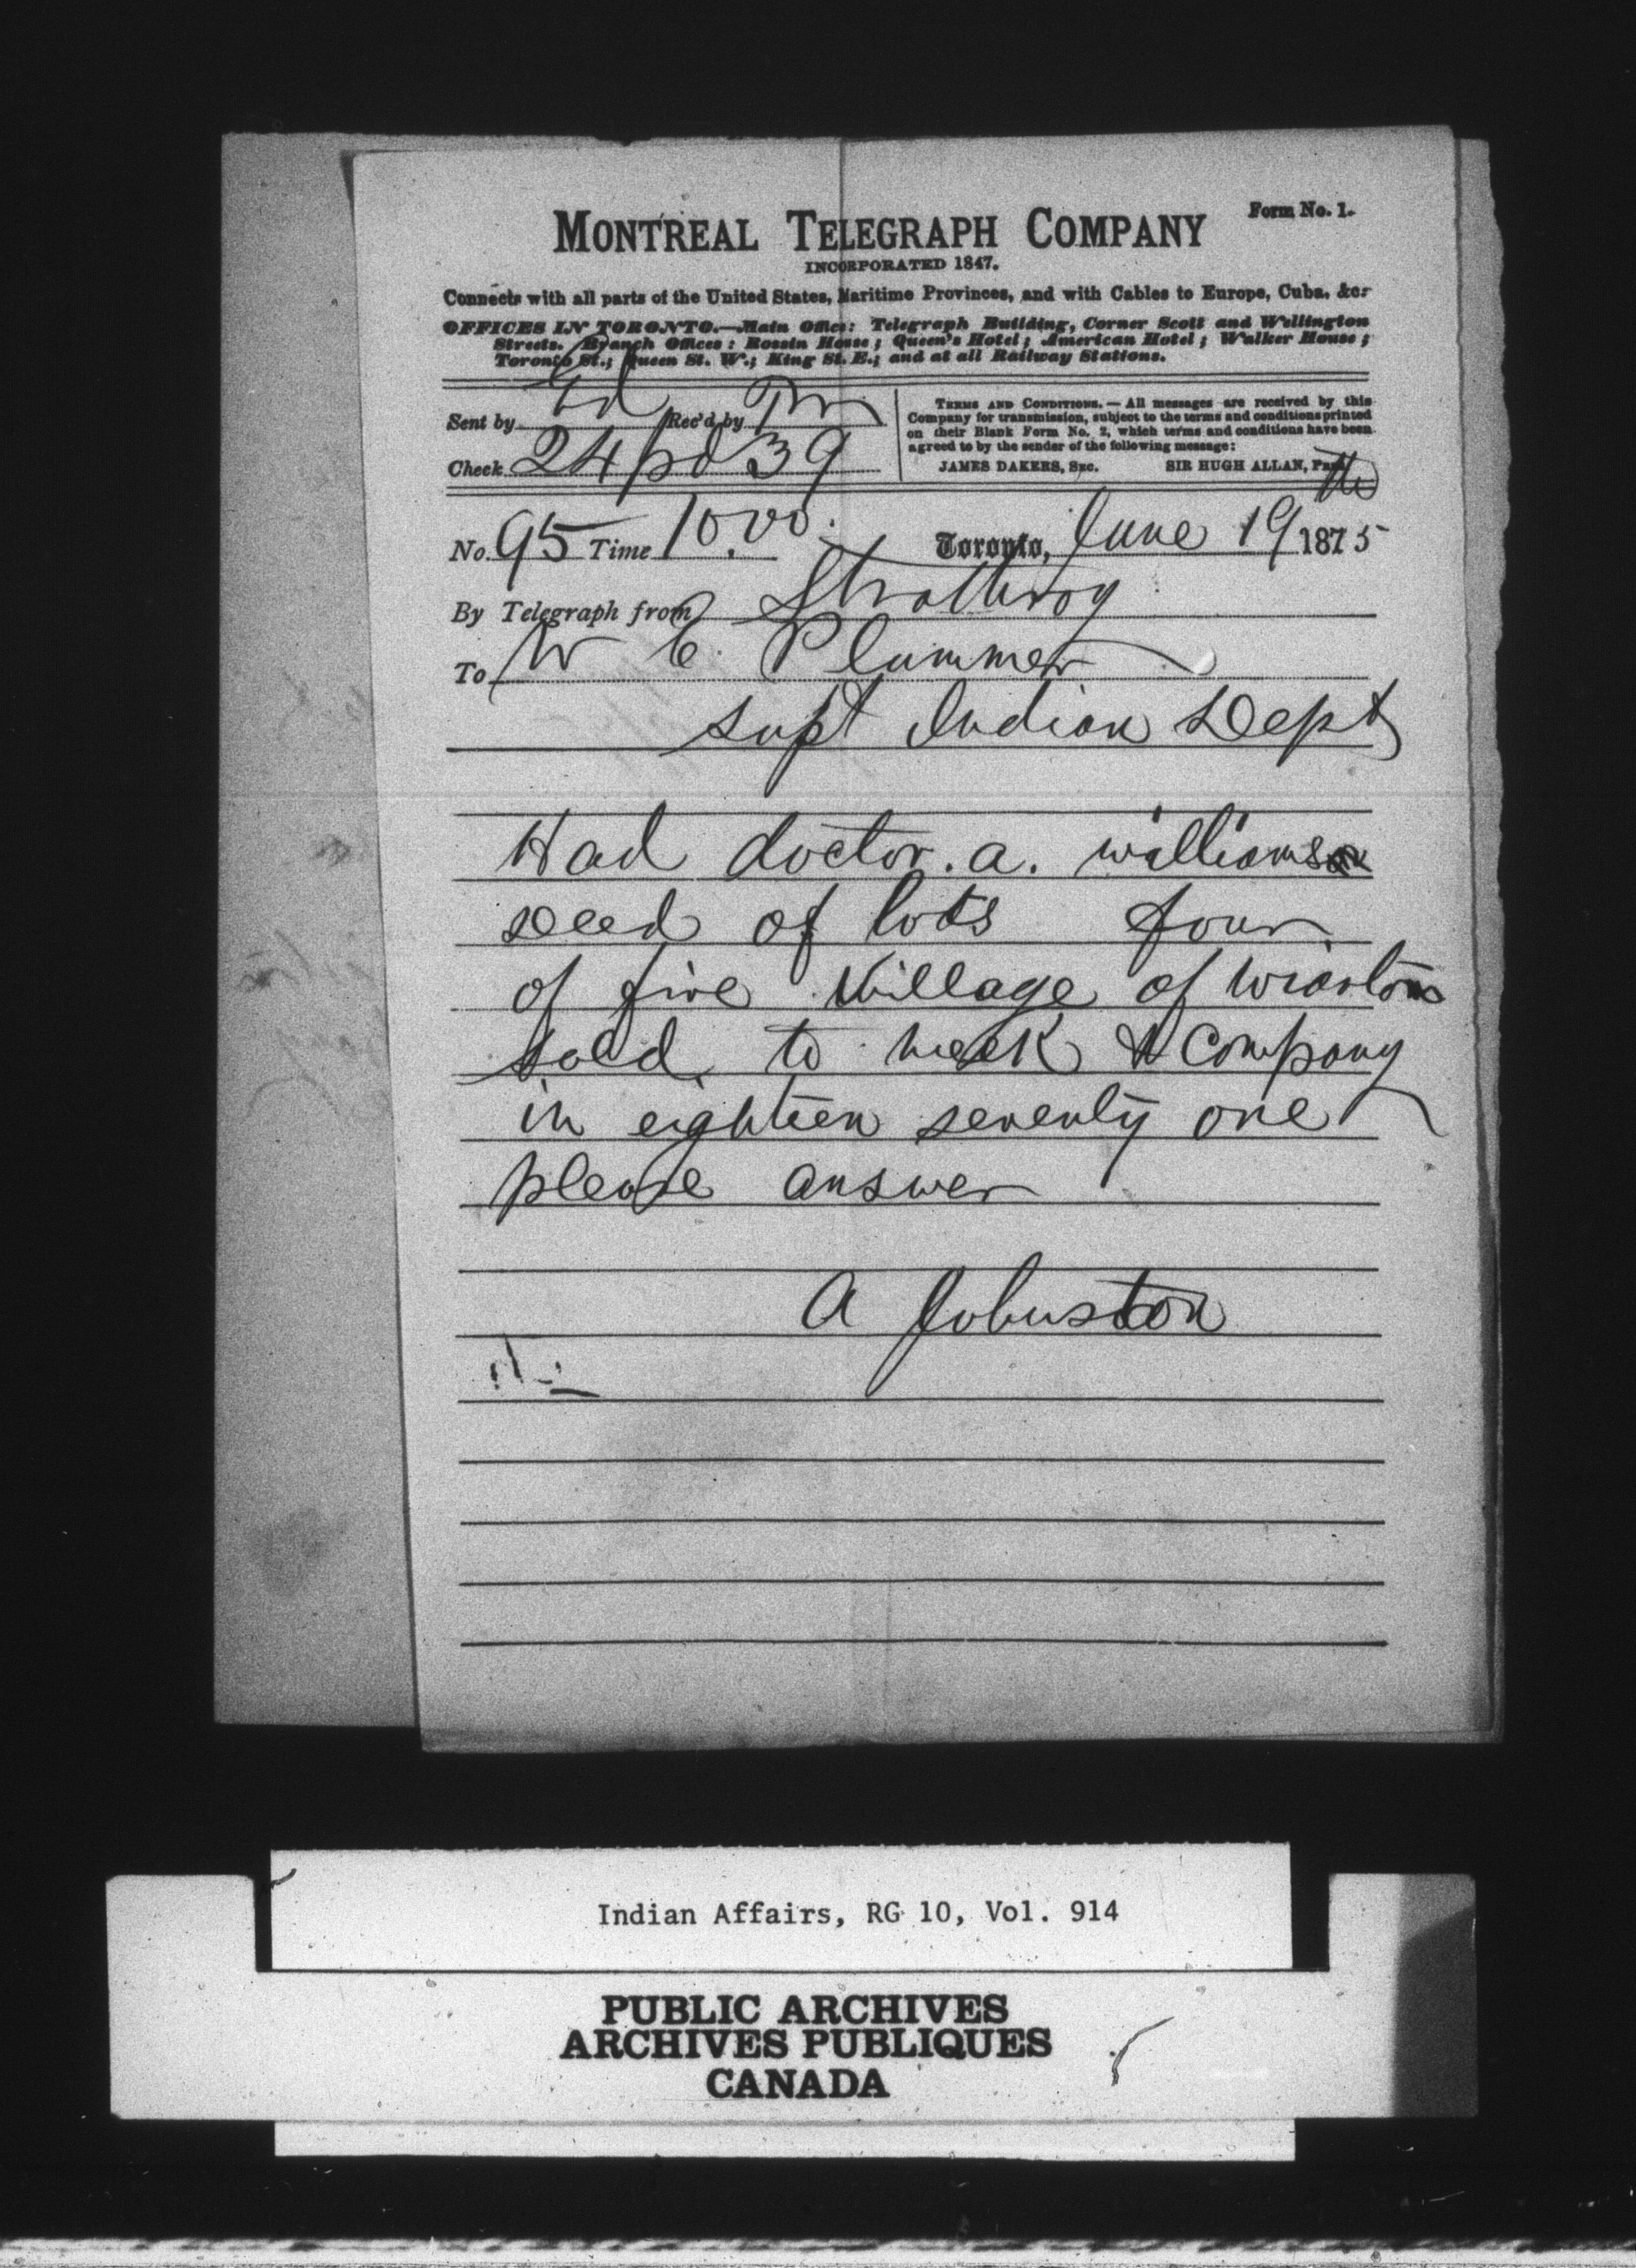 Form No. 1.
MONTREAL TELEGRAPH COMPANY
INCORPORATED 1847.
Connects with all parts of the United States, Maritime Provinces, and with Cables to Europe, Cuba, &c.
OFFICES IN TORONTO.—Main Office: Telegraph Building, Corner Scott and Wellington
Streets. Branch Offices: Rossin House; Queen's Hotel; American Hotel; Walker House;
Toronto St.; Queen St. W.; King St. E.; and at all Railway Stations.
Sent by Ed Rec'd by
Check 24 pd 39
TERMS AND CONDITIONS.—All messages are received by this
Company for transmission, subject to the terms and conditions printed
on their Blank Form No. 2, which terms and conditions have been
agreed to by the sender of the following message:
JAMES DAKERS, SEC. SIR HUGH ALLAN, PRES.
No. 95 Time 10.00. Toronto, June 19th 1875
By Telegraph from Strathroy
To W C. Plummer
supt Indian Dept
Had doctor. a. williams
deed of lots four
of five Village of Wiarton
sold to meek & Company
in eighteen seventy one
please answer
A Johnston
Indian Affairs, RG 10, Vol. 914
PUBLIC ARCHIVES
ARCHIVES PUBLIQUES
CANADA